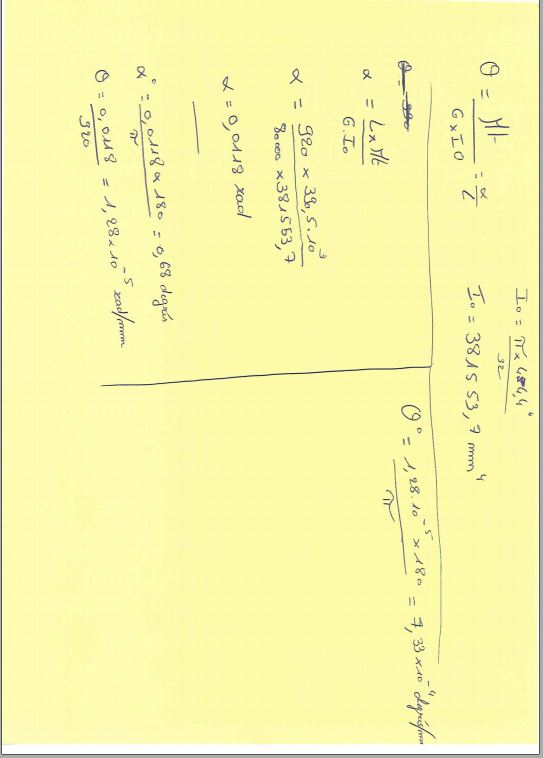 I₀ = π x 44,4⁴ / 32
θ = Mt / G x I0 = α / L
I₀ = 381553,7 mm⁴
α = L x Mt / G . I₀
α = 920 x 390,5.10³ / 80000 x 381553,7
α = 0,0118 rad
α° = 0,0118 x 180 / π = 0,68 degrés
θ = 0,0118 / 920 = 1,28 x 10⁻⁵ rad/mm
θ° = 1,28.10⁻⁵ x 180 / π = 7,33 x 10⁻⁴ degrés/mm